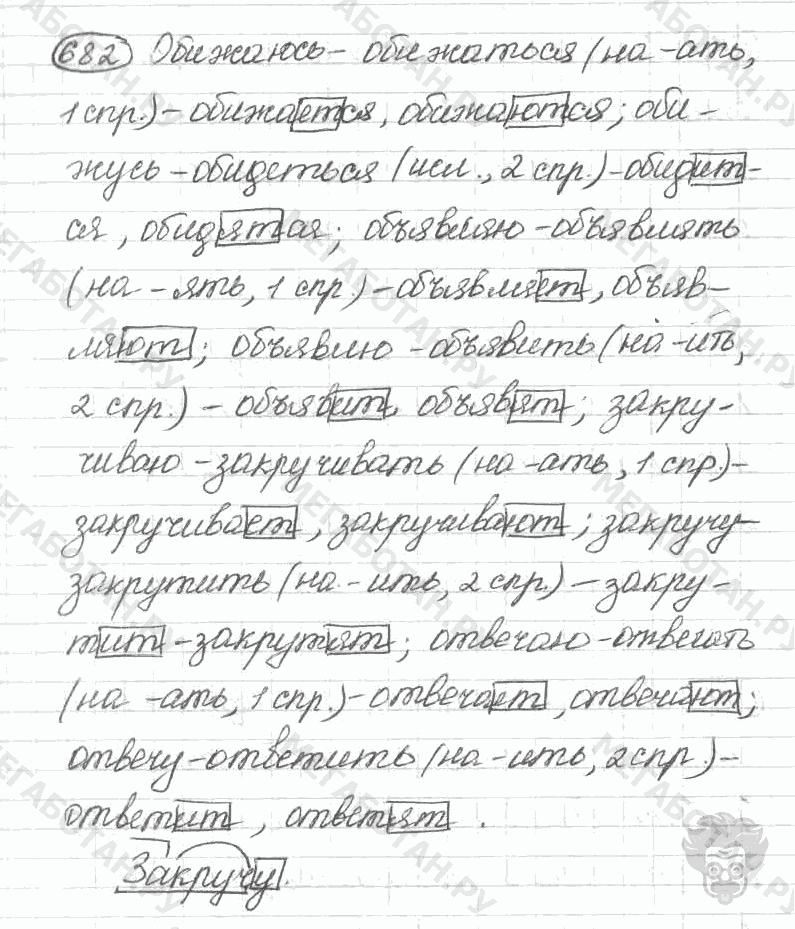 682 Обижаюсь - обижаться (на -ать,
1 спр.) - обижается, обижаются; оби-
жусь - обидеться (искл., 2 спр.) - обидит-
ся, обидятся; объявляю - объявлять
(на - ять, 1 спр.) - объявляет, объяв-
ляют; объявлю - объявить (на -ить,
2 спр.) - объявит, объявят; закру-
чиваю - закручивать (на -ать, 1 спр.) -
закручивает, закручивают; закручу -
закрутить (на - ить, 2 спр.) - закру-
тит - закрутят; отвечаю - отвечать
(на -ать, 1 спр.) - отвечает, отвечают;
отвечу - ответить (на -ить, 2 спр.) -
ответит, ответят.
Закручу.